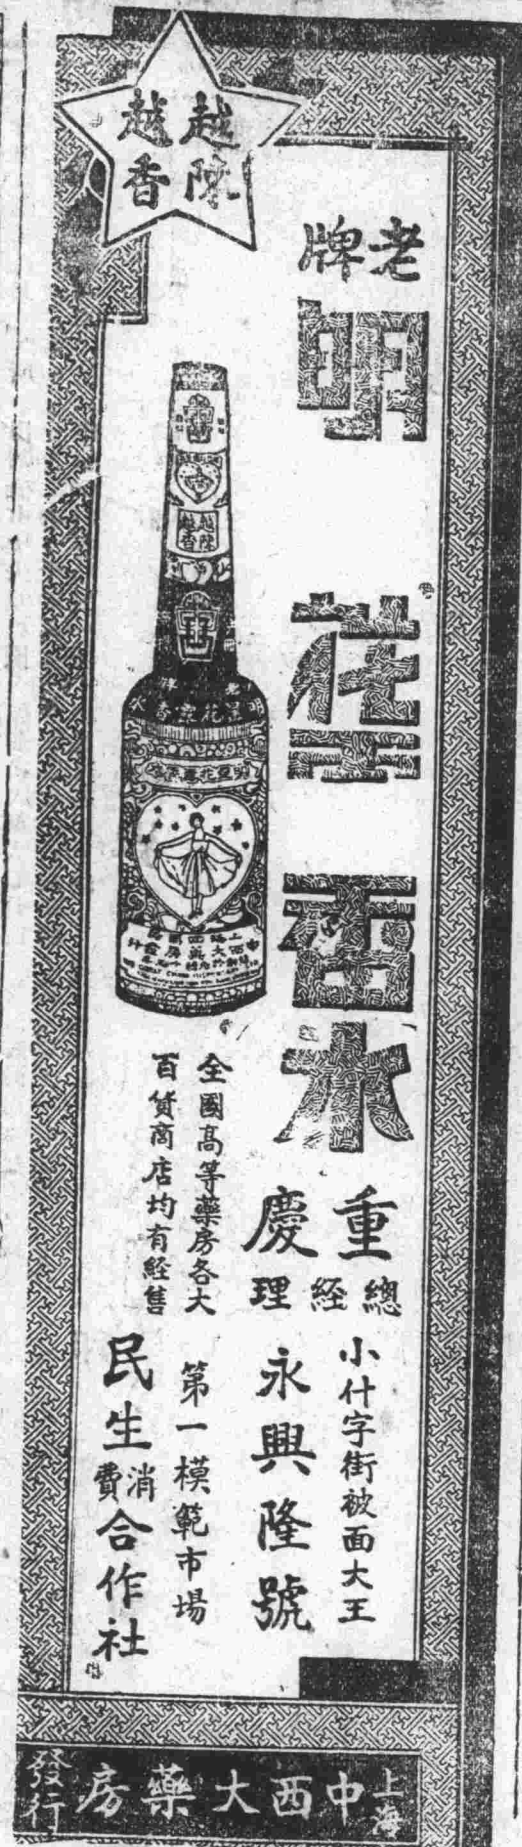 越陳
越香
老牌
明花香水
越陳
越香
重慶
總經理
小什字街被面大王
永興隆號
全國高等藥房各大
百貨商店均有經售
第一模範市場
民生消費合作社
上海中西大藥房發行